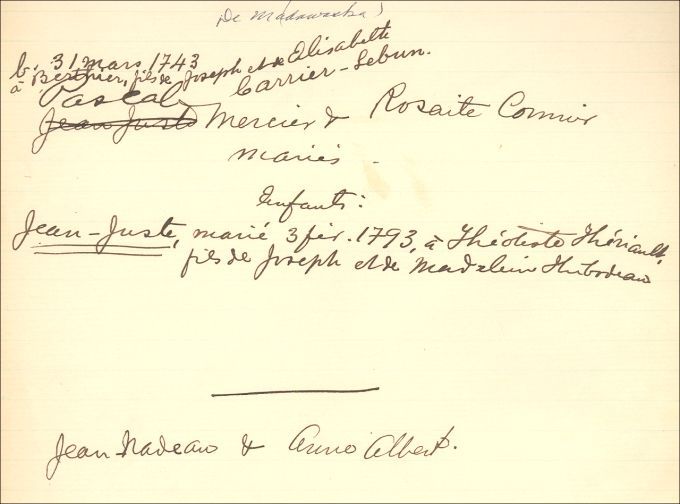 De Madawaska)
b. 31 mars 1743
à Berthier, fils de Joseph et de Elisabeth
Carrier-Lebrun.
Pascal
Jean Juste Mercier & Rosalie Cormier
mariés
Enfants:
Jean-Juste, marié 3 fév. 1793, à Théotiste Thériault,
fils de Joseph et de Madeleine Thibodeau
Jean Nadeau & Anne Albert.